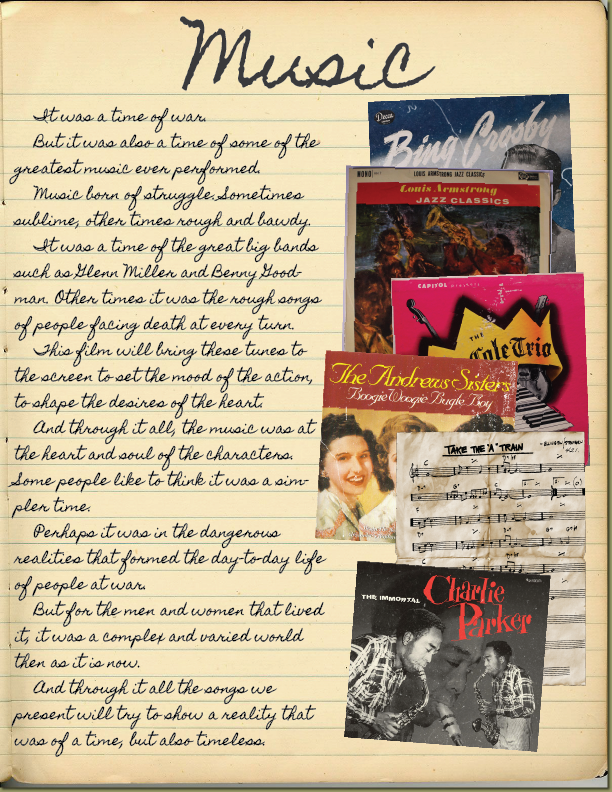 Music
It was a time of war.
But it was also a time of some of the
greatest music ever performed.
Music born of struggle. Sometimes
sublime, other times rough and bawdy.
It was a time of the great big bands
such as Glenn Miller and Benny Good-
man. Other times it was the rough songs
of people facing death at every turn.
This film will bring these tunes to
the screen to set the mood of the action,
to shape the desires of the heart.
And through it all, the music was at
the heart and soul of the characters.
Some people like to think it was a sim-
pler time.
Perhaps it was in the dangerous
realities that formed the day-to-day life
of people at war.
But for the men and women that lived
it, it was a complex and varied world
then as it is now.
And through it all the songs we
present will try to show a reality that
was of a time, but also timeless.
Decca
Bing Crosby
MONO
LOUIS ARMSTRONG JAZZ CLASSICS
Louis Armstrong
JAZZ CLASSICS
CAPITOL
THE
Cole Trio
The Andrews Sisters
Boogie Woogie Bugle Boy
TAKE THE "A" TRAIN
THE IMMORTAL
Charlie
Parker